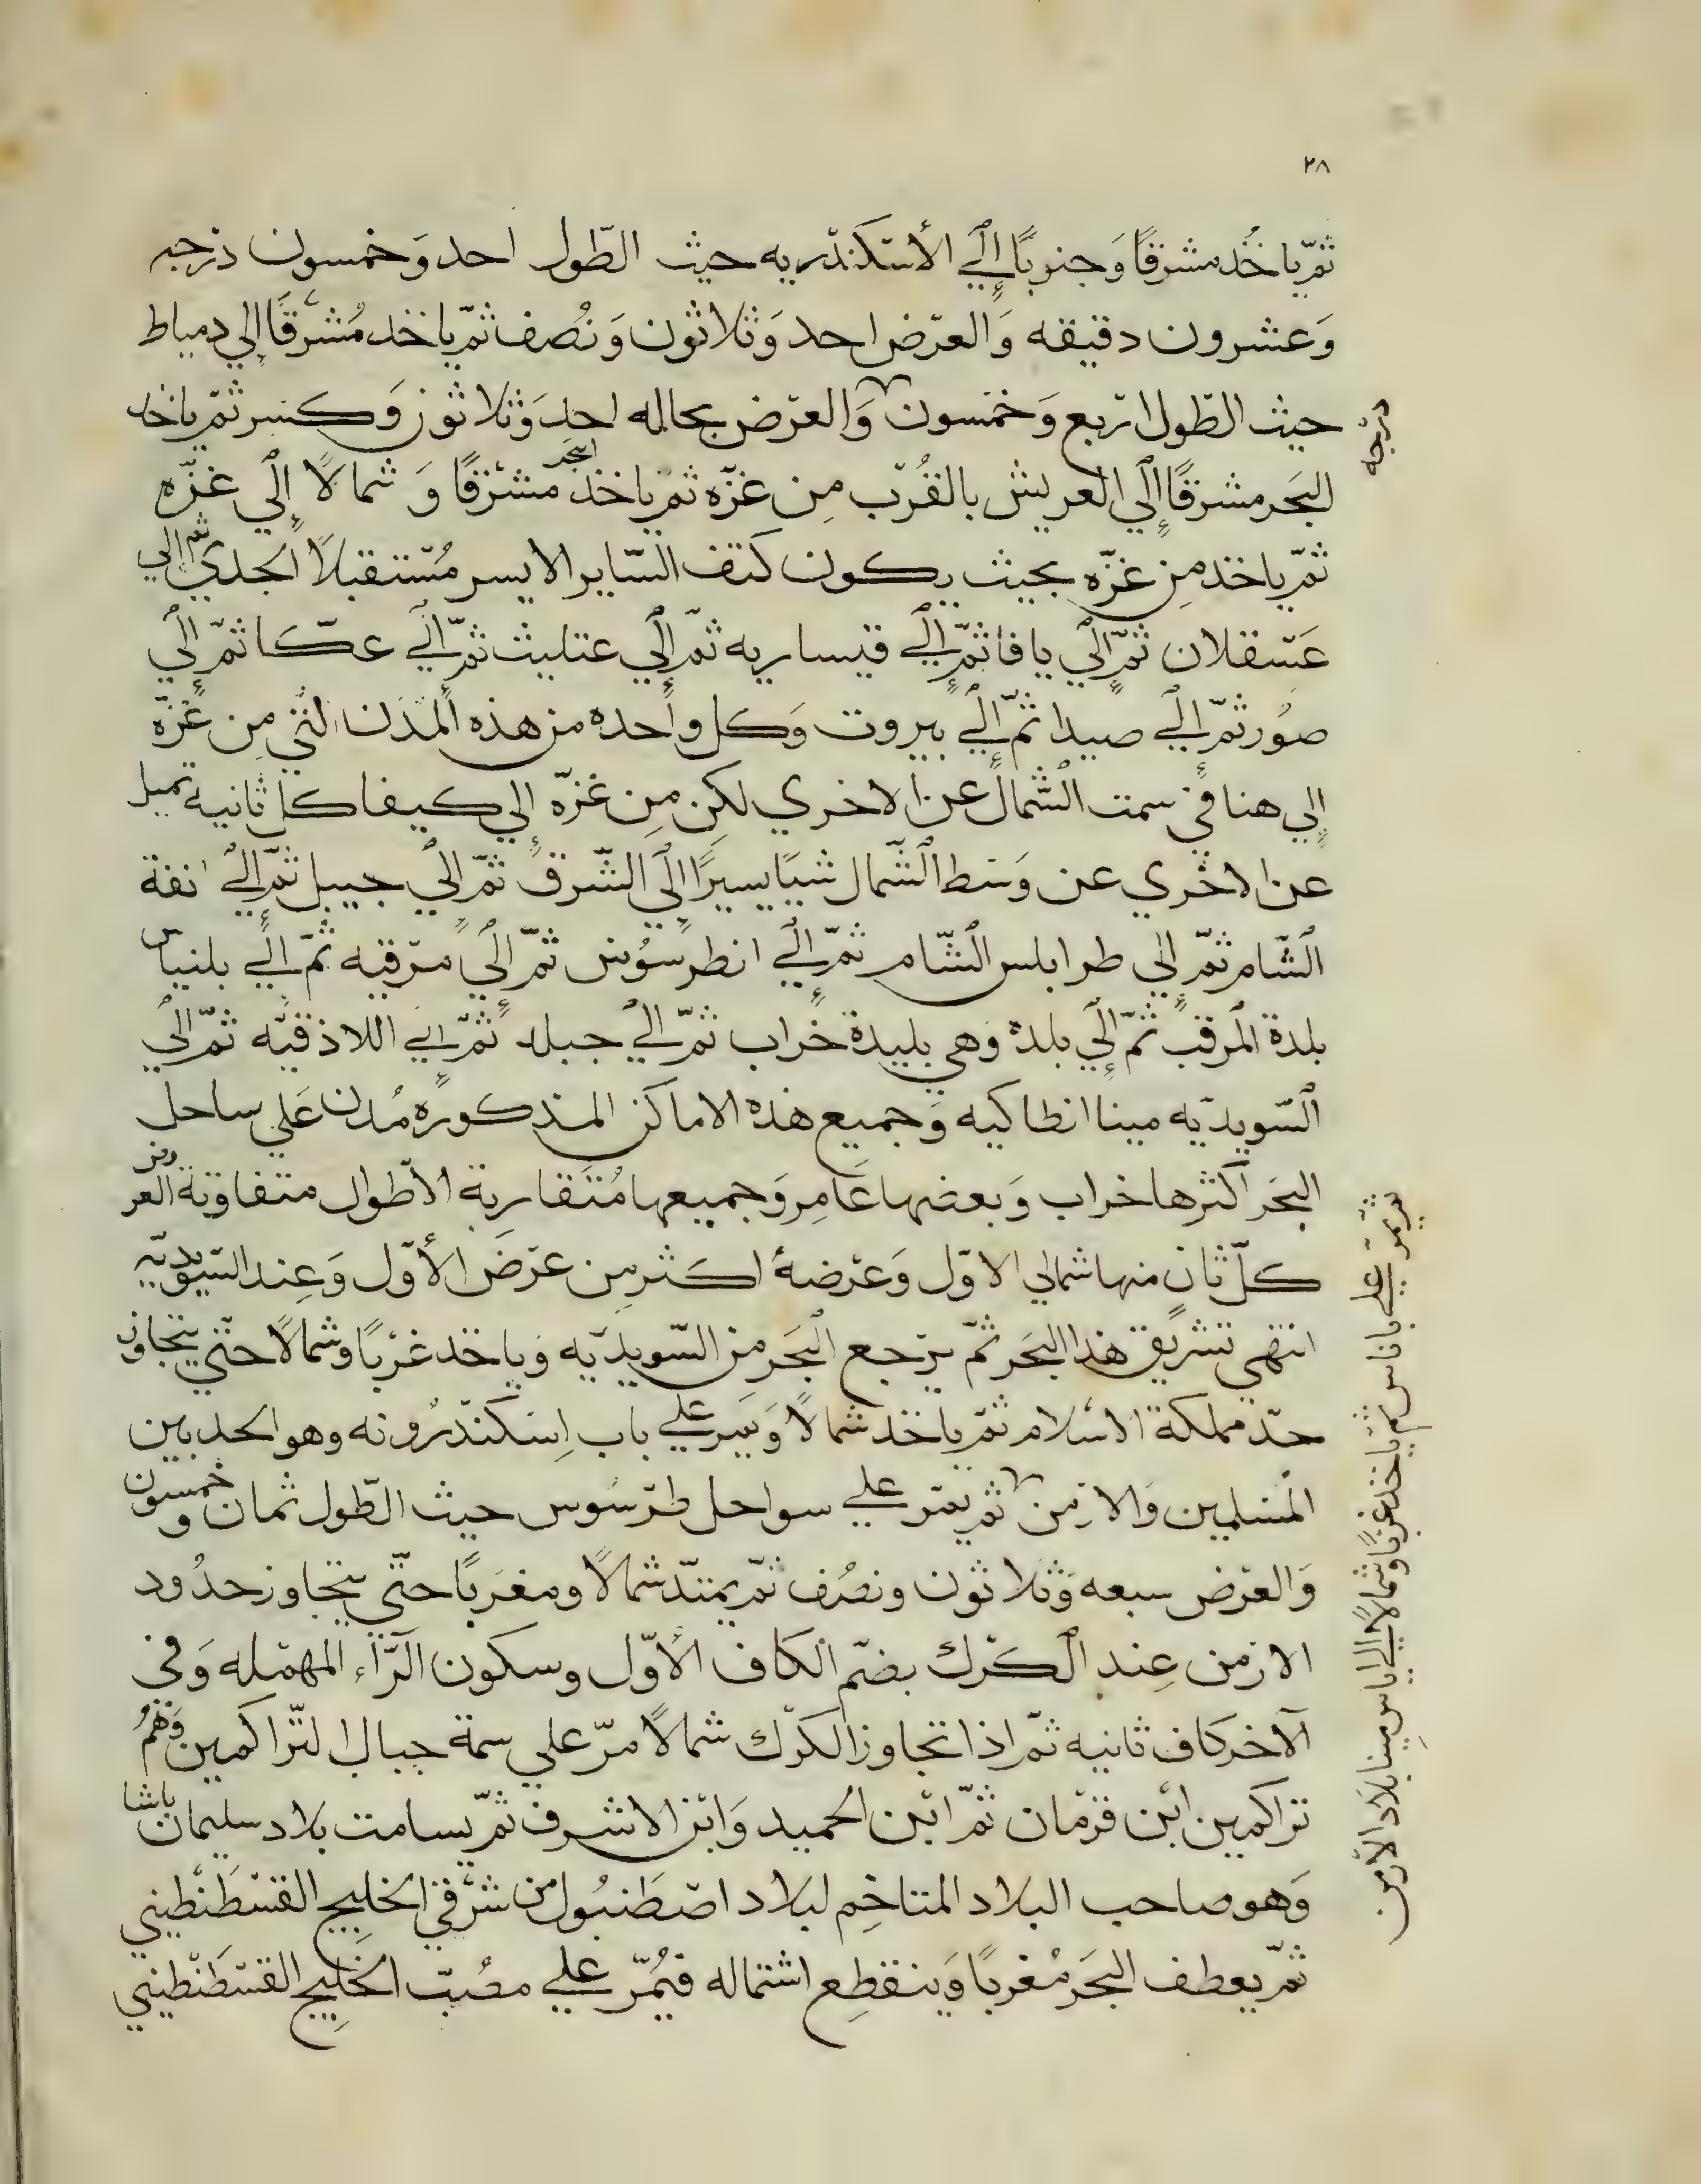 ٢٨
ثمّ ياخُذ مشرقًا وَجنوبًا إلَي الأسكندريه حيث الطّول احد وَخمسون درجه
وَعشرون دقيقه وَالعرض احد وَثلاثون وَنُصف ثمّ ياخد مُشرّقًا إلي دمياط
حيث الطّول اربع وَخمسون وَالعرض بحاله احد وَثلاثون وَكسر ثمّ ياخد
درجه
البَحر مشرقًا إلَي العريش بالقُرب مِن غزّه ثمّ ياخذ البَحر مشرقًا وَ شمالًا إلَي غزّه
ثمّ ياخذ مِن غزّه بحيث يكون كتف السّاير الايسر مُستقبلًا الجدي ثم الي
عَسقلان ثمّ إلَي يافا ثمّ إلَي قيساريه ثمّ إلَي عتليث ثمّ إلَي عكّا ثمّ إلَي
صُور ثمّ إلَي صيدا ثمّ إلَي بيروت وَكل واحده من هذه المدَن الّتي مِن غزّه
إلي هنا في سمت الشّمال عن الاخري لكن مِن غزّه إلي كيفا كل ثانيه تميل
عن الاخري عن وَسط الشّمال شيًا يسيرًا إلَي الشّرق ثمّ إلَي جبيل ثمّ إلَي انفة
الشّام ثمّ إلي طرابلس الشّام ثمّ إلَي انطرسُوس ثمّ إلَي مرقيه ثمّ إلَي بلنياس
بلدة المرقب ثمّ إلَي بلده وَهي بليدة خراب ثمّ إلَي جبله ثمّ إلي اللاذقيّه ثمّ إلَي
السّويديّه مينا انطاكيه وَجميع هذه الاماكن المذكوره مُدن عَلي ساحل
البَحر اكثرها خراب وَبعضها عَامِر وَجميعها مُتَقاربة الأطوال متفاوتة العروض
كلّ ثان منها شمالي الاوّل وَعرضهُ اكثر مِن عرَض الأوّل وَعِند السّويديّه
انتهي تشريق هذا البَحر ثمّ يرجع البَحر من السّويديّه وَياخذ غربًا وشمالًا حتّي يتجاوز
حدّ مملكة الاسلام ثمّ ياخذ شمالًا وَيمر علي باب اِسكندرُونه وهو الحد بين
المسلمين وَالارمن ثم يمر علي سواحل طرسُوس حيث الطّول ثمان وخمسون
وَالعرَض سبعه وَثلاثون ونصُف ثمّ يمتدّ شمالًا ومغرَبًا حتّي يتجاوز حدُود
الارمن عِند الكرك بضمّ الكاف الأوّل وسكون الرّآء المهمله وَفي
الآخر كاف ثانيه ثمّ اذا تجاوز الكرك شمالًا مرّ علي سمة جبال التّراكمين وَهُم
تراكمين ابْن قرمان ثمّ ابْن الحميد وَابن الاشرف ثمّ يسامت بلاد سليمان باشا
وَهو صاحب البلاد المتاخِم لبلاد اصطَنبُول من شرقي الخليج القسطَنطيني
ثمّ يعطف البَحر مُغربًا وَينقطِع اشتماله فيُمرّ علي مصُبّ الخَلِيج القسطَنطيني
ثم يمرّ علي باناس ثم ياخذ غربًا وشمالًا الي اياس مينا بلاد الارمن